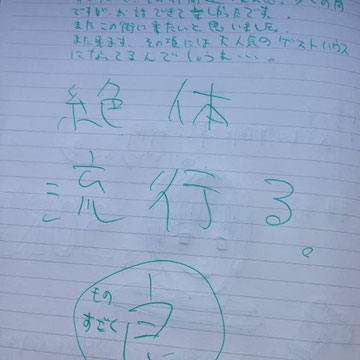 ですが、お話できて楽しかったです。
またこの街に来たいと思いました。
また来ます。その頃には大人気のゲストハウス
になってるんでしょうね…。
絶体
流行る。
もの
すごく